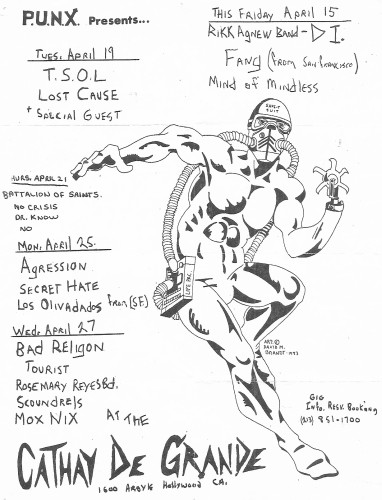 P.U.N.X Presents...
Tues. April 19
T.S.O.L
Lost Cause
+ Special Guest
This Friday April 15
Rikk Agnew Band - D.I.
Fang (from San Francisco)
Mind of Mindless
Turs. April 21
Battalion of Saints.
No Crisis
Dr. Know
No
Mon. April 25.
Agression
Secret Hate
Los Olivadados from (S.F.)
Wed. April 27
Bad Religon
Tourist
Rosemary Reyes Bd.
Scoundrels
Mox Nix
At the
Cathay De Grande
1600 Argyle Hollywood Ca.
Life Pac
Art ©
David M.
Brandt
Gig
Info. Resv. Booking
(213) 851-1700